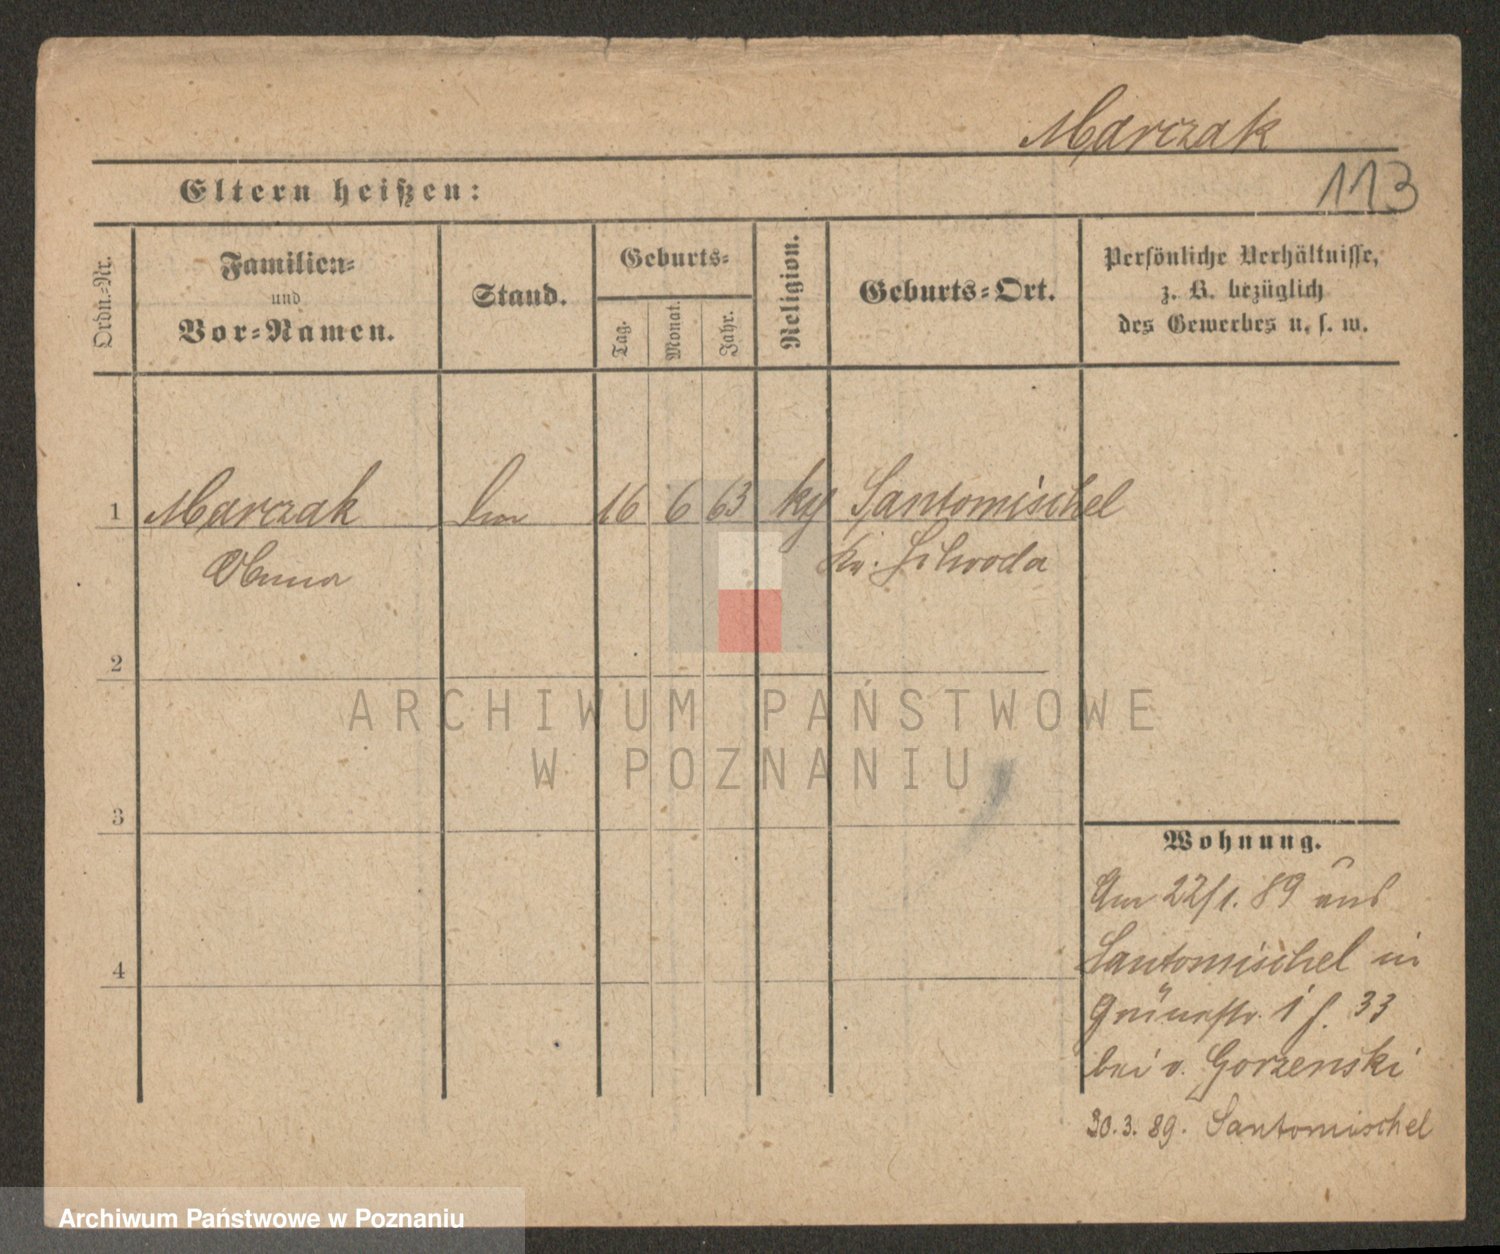 Marczak
113
Eltern heißen:
Ordn.-Nr.
Familien-
und
Vor-Namen.
Stand.
Geburts-
Tag.
Monat.
Jahr.
Religion.
Geburts-Ort.
Persönliche Verhältnisse,
z. B. bezüglich
des Gewerbes u. s. w.
1 Marczak 16 6 63 Santomischel
Anna Kr. Schroda
2
3
4
Wohnung.
Am 22/1. 89 aus
Santomischel in
Grünestr. 1 33
bei v. Gorzenski
30. 3. 89. Santomischel
ARCHIWUM PAŃSTWOWE
W POZNANIU
Archiwum Państwowe w Poznaniu